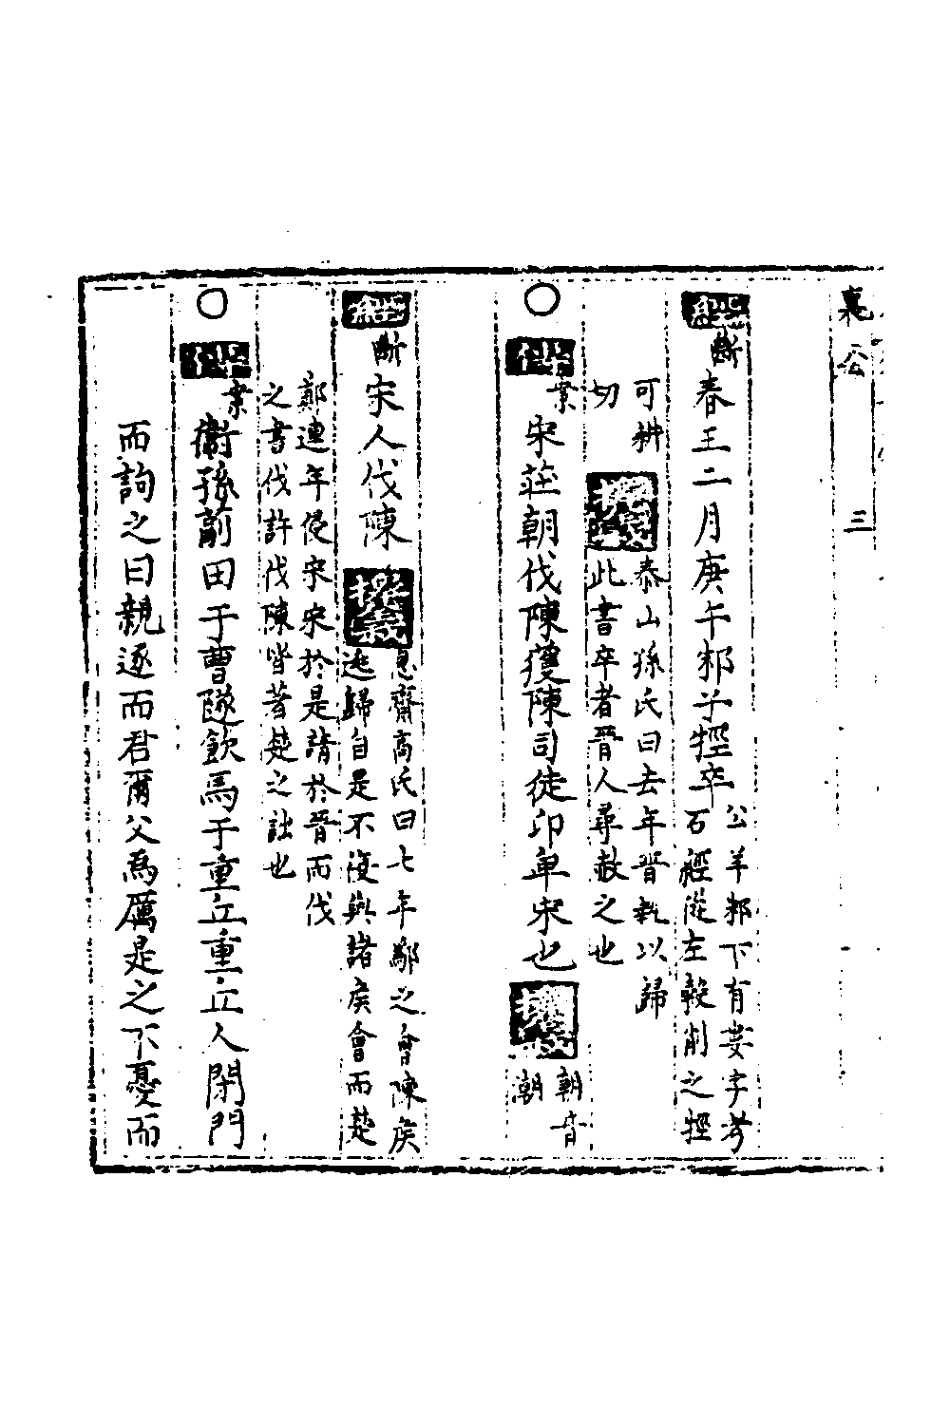 襄公
三
經斷春王二月庚午邾子牼卒
公羊邾下有婁字考
石經從左穀削之牼
可耕
切
泰山孫氏曰去年晋執以歸
此書卒者晋人尋赦之也
〇傳業宋莊朝伐陳獲陳司徒卬卑宋也
朝音
潮
經斷宋人伐陳
息齋高氏曰七年鄬之會陳侯
逃歸自是不復與諸侯會而楚
鄭連年侵宋宋於是請於晋而伐
之書伐許伐陳皆著楚之詘也
〇傳業衞孫蒯田于曹隧飲馬于重丘重丘人閉門
而訽之曰親逐而君爾父爲厲是之不憂而